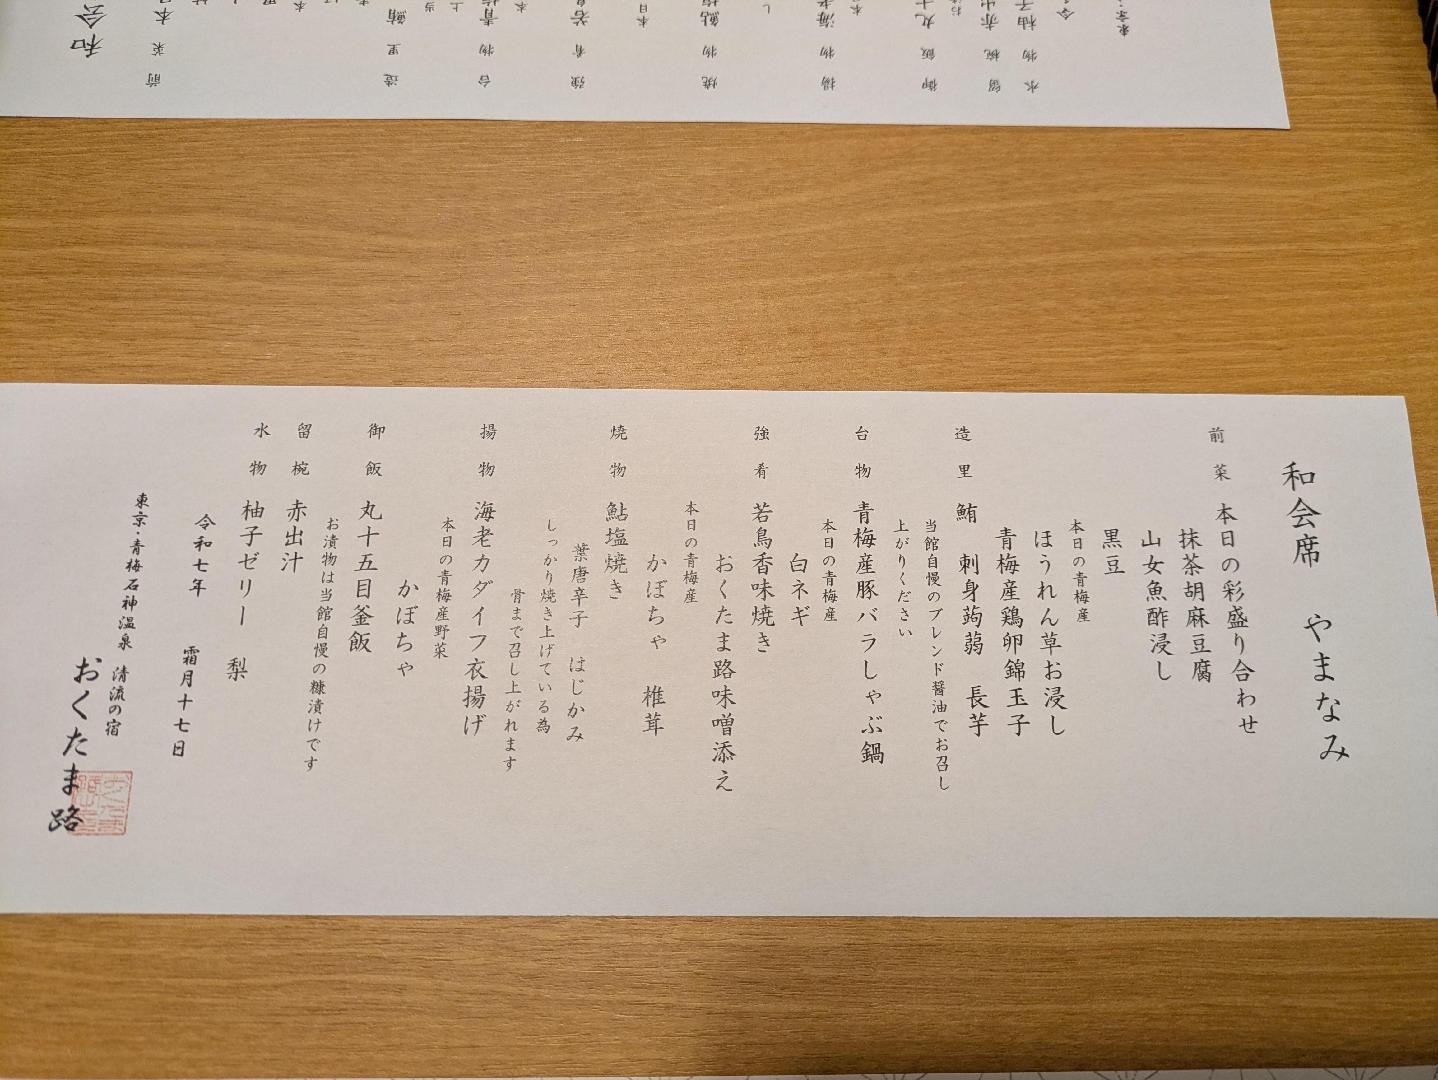 和会席　やまなみ
前菜　本日の彩盛り合わせ
抹茶胡麻豆腐
山女魚酢浸し
黒豆
本日の青梅産
ほうれん草お浸し
青梅産鶏卵錦玉子
造里　鮪　刺身蒟蒻　長芋
当館自慢のブレンド醤油でお召し
上がりください
台物　青梅産豚バラしゃぶ鍋
本日の青梅産
白ネギ
強肴　若鳥香味焼き
おくたま路味噌添え
本日の青梅産
かぼちゃ　椎茸
焼物　鮎塩焼き
葉唐辛子　はじかみ
しっかり焼き上げている為
骨まで召し上がれます
揚物　海老カダイフ衣揚げ
本日の青梅産野菜
かぼちゃ
御飯　丸十五目釜飯
お漬物は当館自慢の糠漬けです
留椀　赤出汁
水物　柚子ゼリー　梨
令和七年　霜月十七日
東京・青梅石神温泉　清流の宿
おくたま路
和会
前菜　本
造里　鮪
台物　青梅
強肴　若鳥
本日
焼物　鮎塩
揚物　海老
御飯　丸十
留椀　赤出
水物　柚子
令
東京・